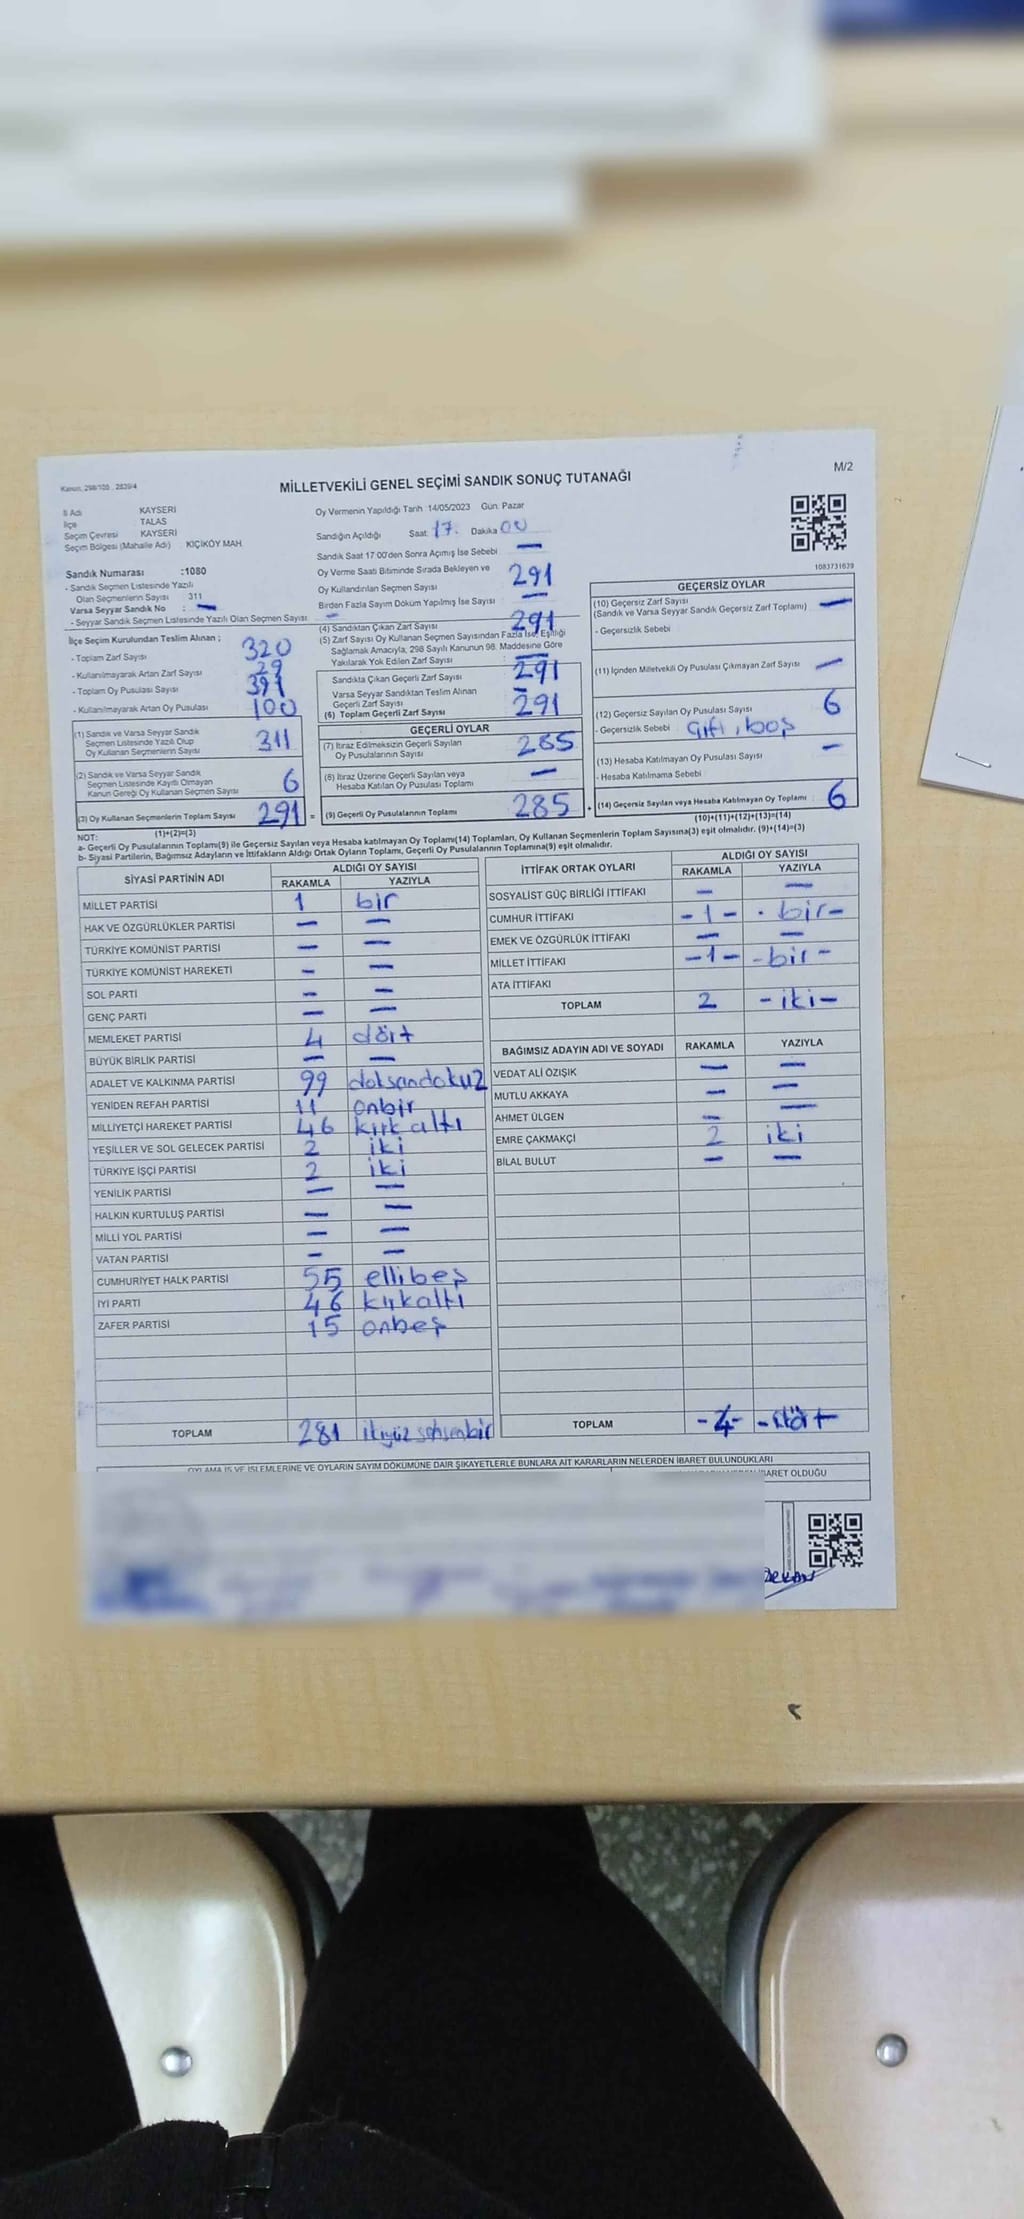 Kanun: 298/105 , 2839/4
MİLLETVEKİLİ GENEL SEÇİMİ SANDIK SONUÇ TUTANAĞI
M/2
İl Adı KAYSERİ
İlçe TALAS
Seçim Çevresi KAYSERİ
Seçim Bölgesi (Mahalle Adı) KIÇIKÖY MAH.
Sandık Numarası :1080
- Sandık Seçmen Listesinde Yazılı
Olan Seçmenlerin Sayısı 311
Varsa Seyyar Sandık No : —
- Seyyar Sandık Seçmen Listesinde Yazılı Olan Seçmen Sayısı —
Oy Vermenin Yapıldığı Tarih 14/05/2023 Gün: Pazar
Sandığın Açıldığı Saat 17. Dakika 00
Sandık Saat 17 00'den Sonra Açımış İse Sebebi —
Oy Verme Saati Bitiminde Sırada Bekleyen ve
Oy Kullandırılan Seçmen Sayısı 291
Birden Fazla Sayım Döküm Yapılmış İse Sayısı —
1083731639
İlçe Seçim Kurulundan Teslim Alınan ;
- Toplam Zarf Sayısı 320
- Kullanılmayarak Artan Zarf Sayısı 29
- Toplam Oy Pusulası Sayısı 391
- Kullanılmayarak Artan Oy Pusulası 100
(1) Sandık ve Varsa Seyyar Sandık
Seçmen Listesinde Yazılı Olup
Oy Kullanan Seçmenlerin Sayısı 311
(2) Sandık ve Varsa Seyyar Sandık
Seçmen Listesinde Kayıtlı Olmayan
Kanun Gereği Oy Kullanan Seçmen Sayısı 6
(3) Oy Kullanan Seçmenlerin Toplam Sayısı 291 =
(1)+(2)=(3)
(4) Sandıktan Çıkan Zarf Sayısı 291
(5) Zarf Sayısı Oy Kullanan Seçmen Sayısından Fazla İse, Eşitliği
Sağlamak Amacıyla, 298 Sayılı Kanunun 98. Maddesine Göre
Yakılarak Yok Edilen Zarf Sayısı —
Sandıkta Çıkan Geçerli Zarf Sayısı 291
Varsa Seyyar Sandıktan Teslim Alınan
Geçerli Zarf Sayısı —
(6) Toplam Geçerli Zarf Sayısı 291
GEÇERLİ OYLAR
(7) İtiraz Edilmeksizin Geçerli Sayılan
Oy Pusulalarının Sayısı 285
(8) İtiraz Üzerine Geçerli Sayılan veya
Hesaba Katılan Oy Pusulası Toplamı —
(9) Geçerli Oy Pusulalarının Toplamı 285 +
GEÇERSİZ OYLAR
(10) Geçersiz Zarf Sayısı
(Sandık ve Varsa Seyyar Sandık Geçersiz Zarf Toplamı) —
- Geçersizlik Sebebi
(11) İçinden Milletvekili Oy Pusulası Çıkmayan Zarf Sayısı —
(12) Geçersiz Sayılan Oy Pusulası Sayısı 6
- Geçersizlik Sebebi Çift, boş
(13) Hesaba Katılmayan Oy Pusulası Sayısı —
- Hesaba Katılmama Sebebi
(14) Geçersiz Sayılan veya Hesaba Katılmayan Oy Toplamı 6
(10)+(11)+(12)+(13)=(14)
NOT:
a- Geçerli Oy Pusulalarının Toplamı(9) ile Geçersiz Sayılan veya Hesaba katılmayan Oy Toplamı(14) Toplamları, Oy Kullanan Seçmenlerin Toplam Sayısına(3) eşit olmalıdır. (9)+(14)=(3)
b- Siyasi Partilerin, Bağımsız Adayların ve İttifakların Aldığı Ortak Oyların Toplamı, Geçerli Oy Pusulalarının Toplamına(9) eşit olmalıdır.
SİYASİ PARTİNİN ADI ALDIĞI OY SAYISI
RAKAMLA YAZIYLA
MİLLET PARTİSİ 1 bir
HAK VE ÖZGÜRLÜKLER PARTİSİ — —
TÜRKİYE KOMÜNİST PARTİSİ — —
TÜRKİYE KOMÜNİST HAREKETİ — —
SOL PARTİ — —
GENÇ PARTİ — —
MEMLEKET PARTİSİ 4 dört
BÜYÜK BİRLİK PARTİSİ — —
ADALET VE KALKINMA PARTİSİ 99 doksandokuz
YENİDEN REFAH PARTİSİ 11 onbir
MİLLİYETÇİ HAREKET PARTİSİ 46 kırkaltı
YEŞİLLER VE SOL GELECEK PARTİSİ 2 iki
TÜRKİYE İŞÇİ PARTİSİ 2 iki
YENİLİK PARTİSİ — —
HALKIN KURTULUŞ PARTİSİ — —
MİLLİ YOL PARTİSİ — —
VATAN PARTİSİ — —
CUMHURİYET HALK PARTİSİ 55 ellibeş
İYİ PARTİ 46 kırkaltı
ZAFER PARTİSİ 15 onbeş
TOPLAM 281 ikiyüz seksenbir
İTTİFAK ORTAK OYLARI ALDIĞI OY SAYISI
RAKAMLA YAZIYLA
SOSYALİST GÜÇ BİRLİĞİ İTTİFAKI — —
CUMHUR İTTİFAKI -1- . bir-
EMEK VE ÖZGÜRLÜK İTTİFAKI — —
MİLLET İTTİFAKI -1- -bir-
ATA İTTİFAKI
TOPLAM 2 -iki-
BAĞIMSIZ ADAYIN ADI VE SOYADI RAKAMLA YAZIYLA
VEDAT ALİ ÖZIŞIK — —
MUTLU AKKAYA — —
AHMET ÜLGEN — —
EMRE ÇAKMAKÇİ 2 iki
BİLAL BULUT — —
TOPLAM -4- -dört
OYLAMA İŞ VE İŞLEMLERİNE VE OYLARIN SAYIM DÖKÜMÜNE DAİR ŞİKAYETLERLE BUNLARA AİT KARARLARIN NELERDEN İBARET BULUNDUKLARI
İBARET OLDUĞU